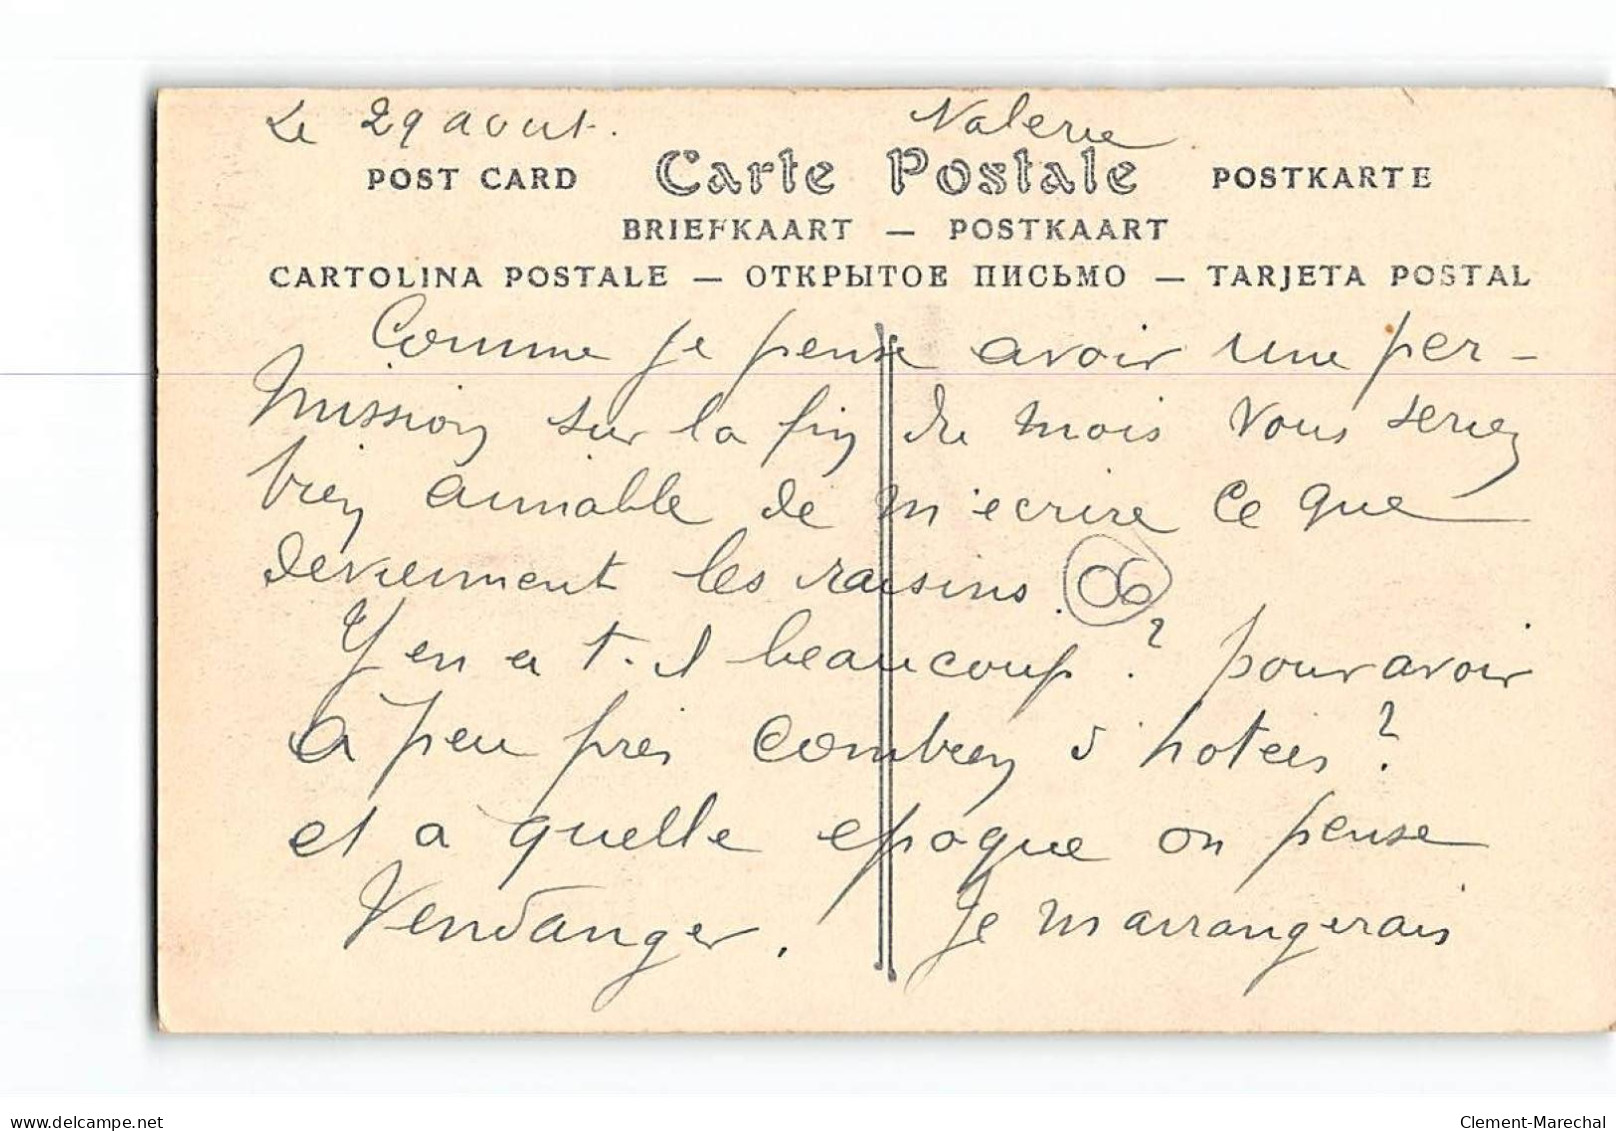 Le 29 aout. Valerie
POST CARD Carte Postale POSTKARTE
BRIEFKAART — POSTKAART
CARTOLINA POSTALE — ОТКРЫТОЕ ПИСЬМО — TARJETA POSTAL
Comme je pense avoir une per-
mission sur la fin du mois vous seriez
bien aimable de m'ecrire ce que
deviennent les raisins. 06
Y en a t-il beaucoup ? pour avoir
a peu près combien d'hotees ?
et a quelle epoque on pense
Vendanger. Je m arrangerais
delcampe.net
Clement-Marechal